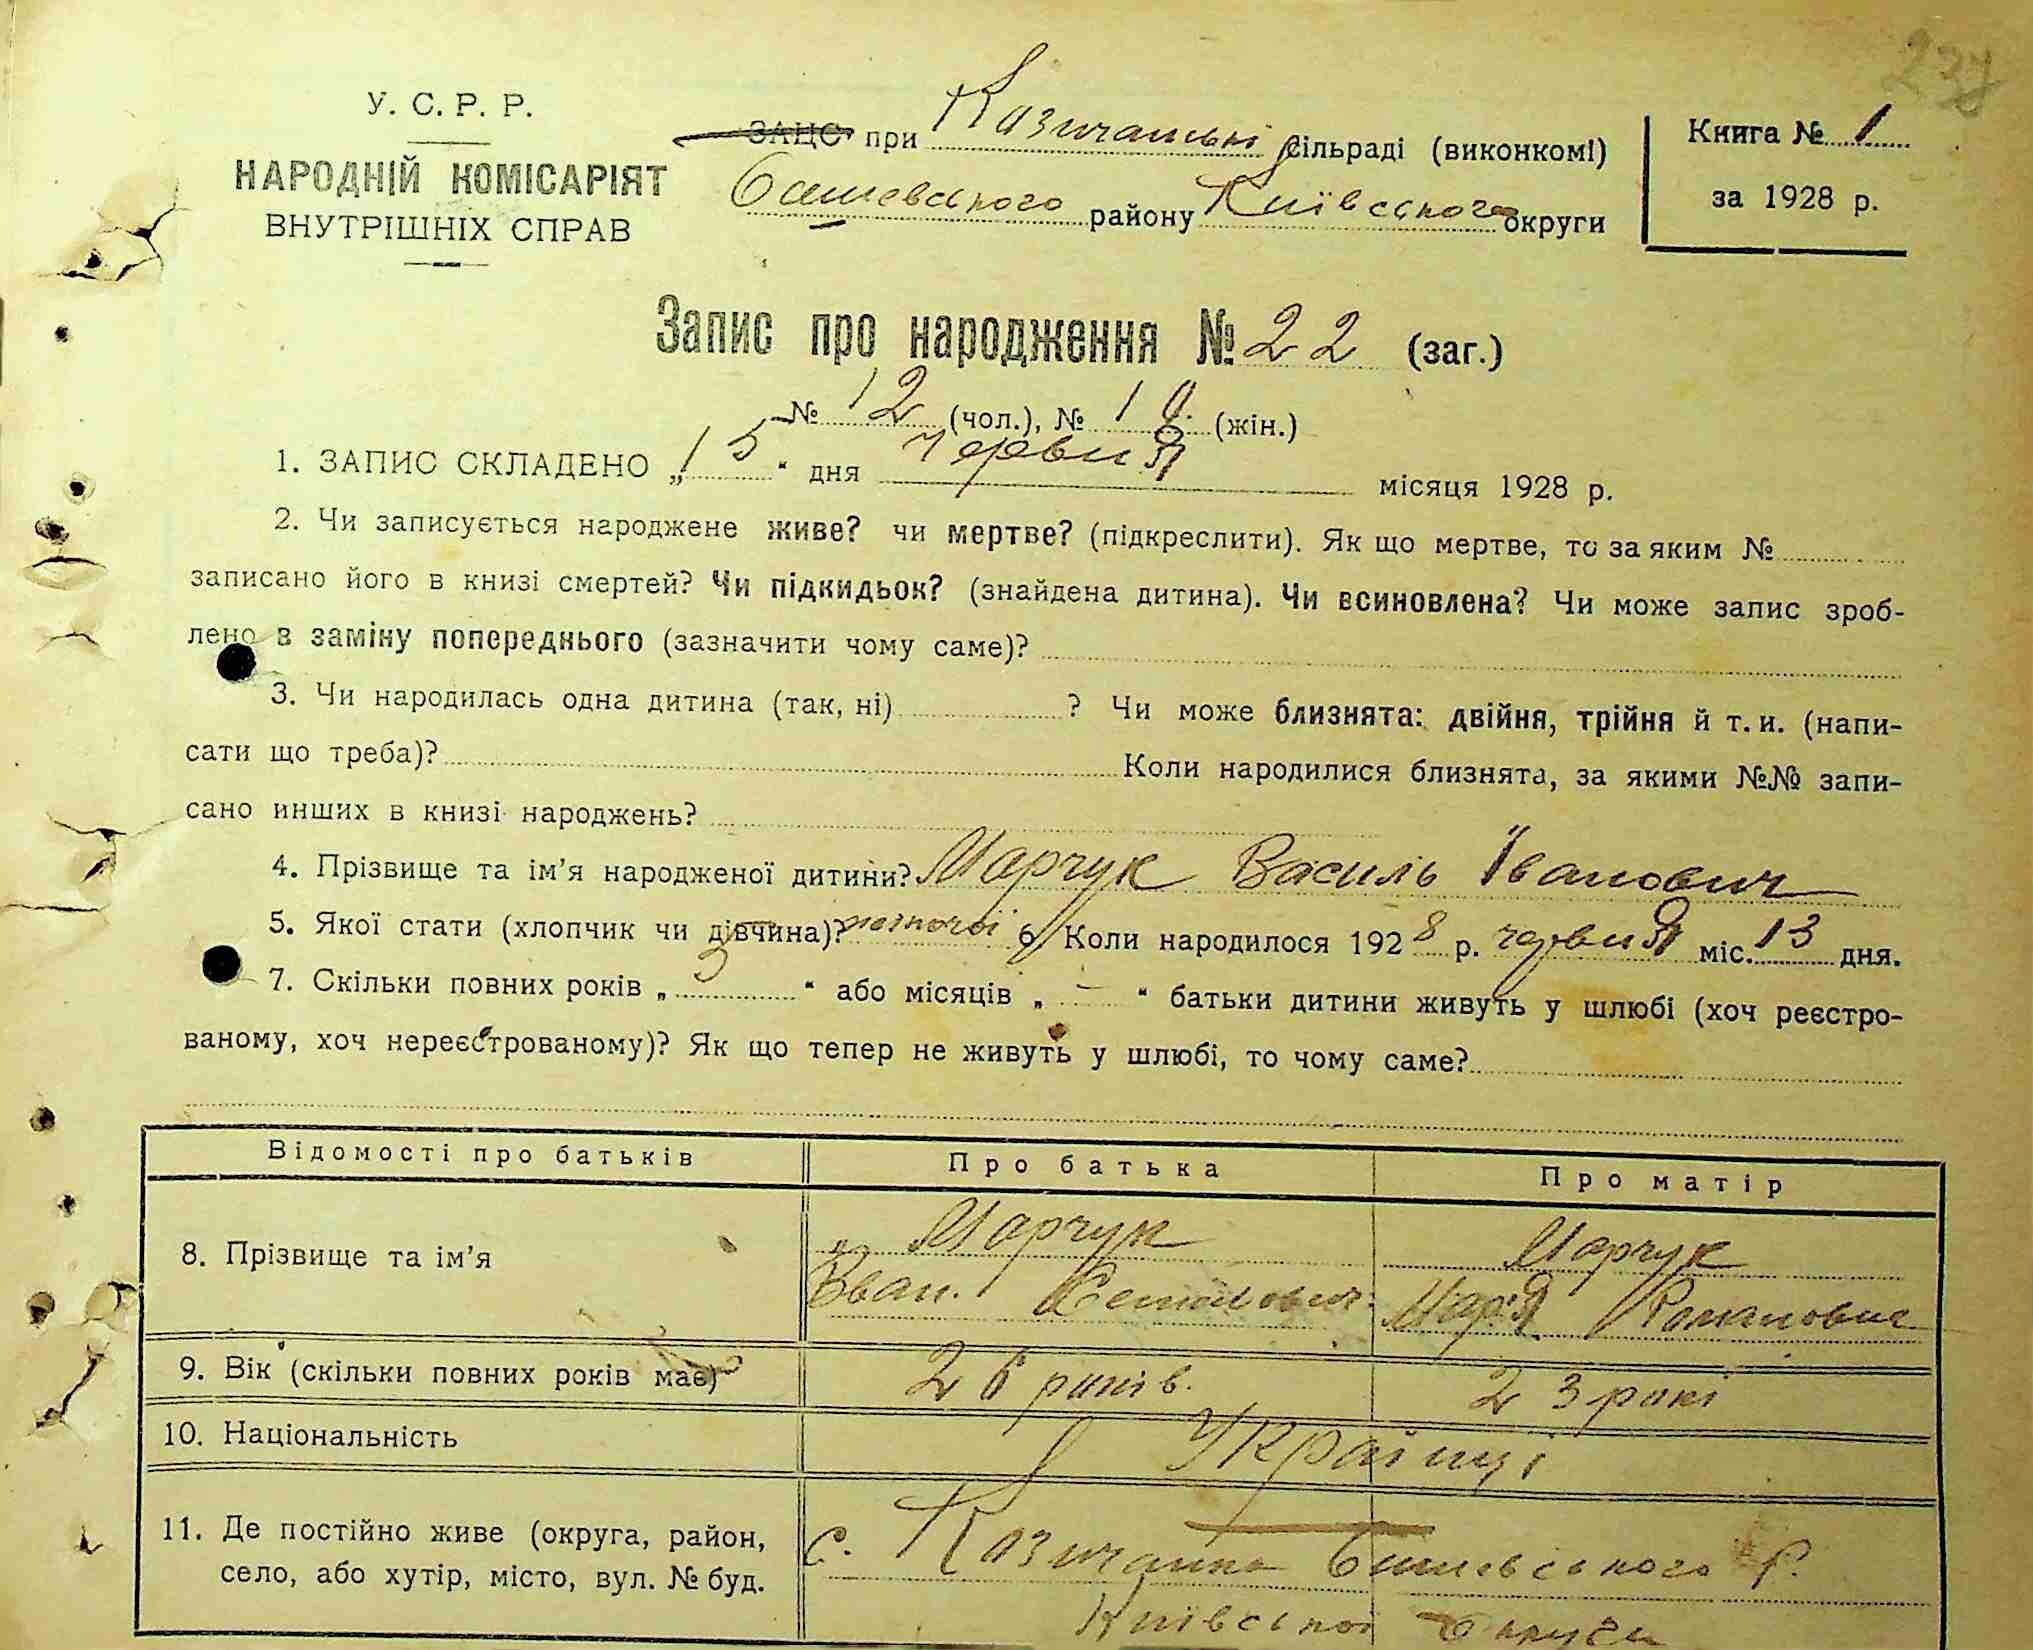 237
У. С. Р. Р.
НАРОДНІЙ КОМІСАРІЯТ
ВНУТРІШНІХ СПРАВ
ЗАЦС при Казичанські сільраді (виконкомі)
Бишевського району Київського округи
Книга № 1
за 1928 р.
Запис про народження № 22 (заг.)
№ 12 (чол.), № 10 (жін.)
1. ЗАПИС СКЛАДЕНО „15“ дня червня місяця 1928 р.
2. Чи записується народжене живе? чи мертве? (підкреслити). Як що мертве, то за яким №
записано його в книзі смертей? Чи підкидьок? (знайдена дитина). Чи всиновлена? Чи може запис зроб-
лено в заміну попереднього (зазначити чому саме)?
3. Чи народилась одна дитина (так, ні) ? Чи може близнята: двійня, трійня й т. и. (напи-
сати що треба)? Коли народилися близнята, за якими №№ запи-
сано инших в книзі народжень?
4. Прізвище та ім’я народженої дитини? Марчук Василь Іванович
5. Якої стати (хлопчик чи дівчина)? 6. Коли народилося 1928 р. червня міс. 13 дня.
7. Скільки повних років „5“ або місяців „-“ батьки дитини живуть у шлюбі (хоч реєстро-
ваному, хоч нереєстрованому)? Як що тепер не живуть у шлюбі, то чому саме?
Відомості про батьків Про батька Про матір
8. Прізвище та ім’я Марчук Марчук
Іван Марія Романовна
9. Вік (скільки повних років має) 26 років. 23 рокі
10. Національність Українці
11. Де постійно живе (округа, район, с. Казичанка Бишевського р.
село, або хутір, місто, вул. № буд. Київської округи